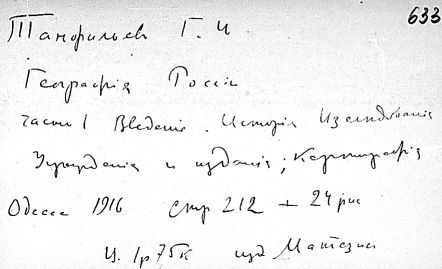 633
Танфильев Г. И.
Географія Россіи
часть I Введеніе. Исторія Изслѣдованія
Учрежденія и изданія; Картографія
Одесса 1916 стр 212 + 24 рис
Ц. 1р 75к изд Матезис